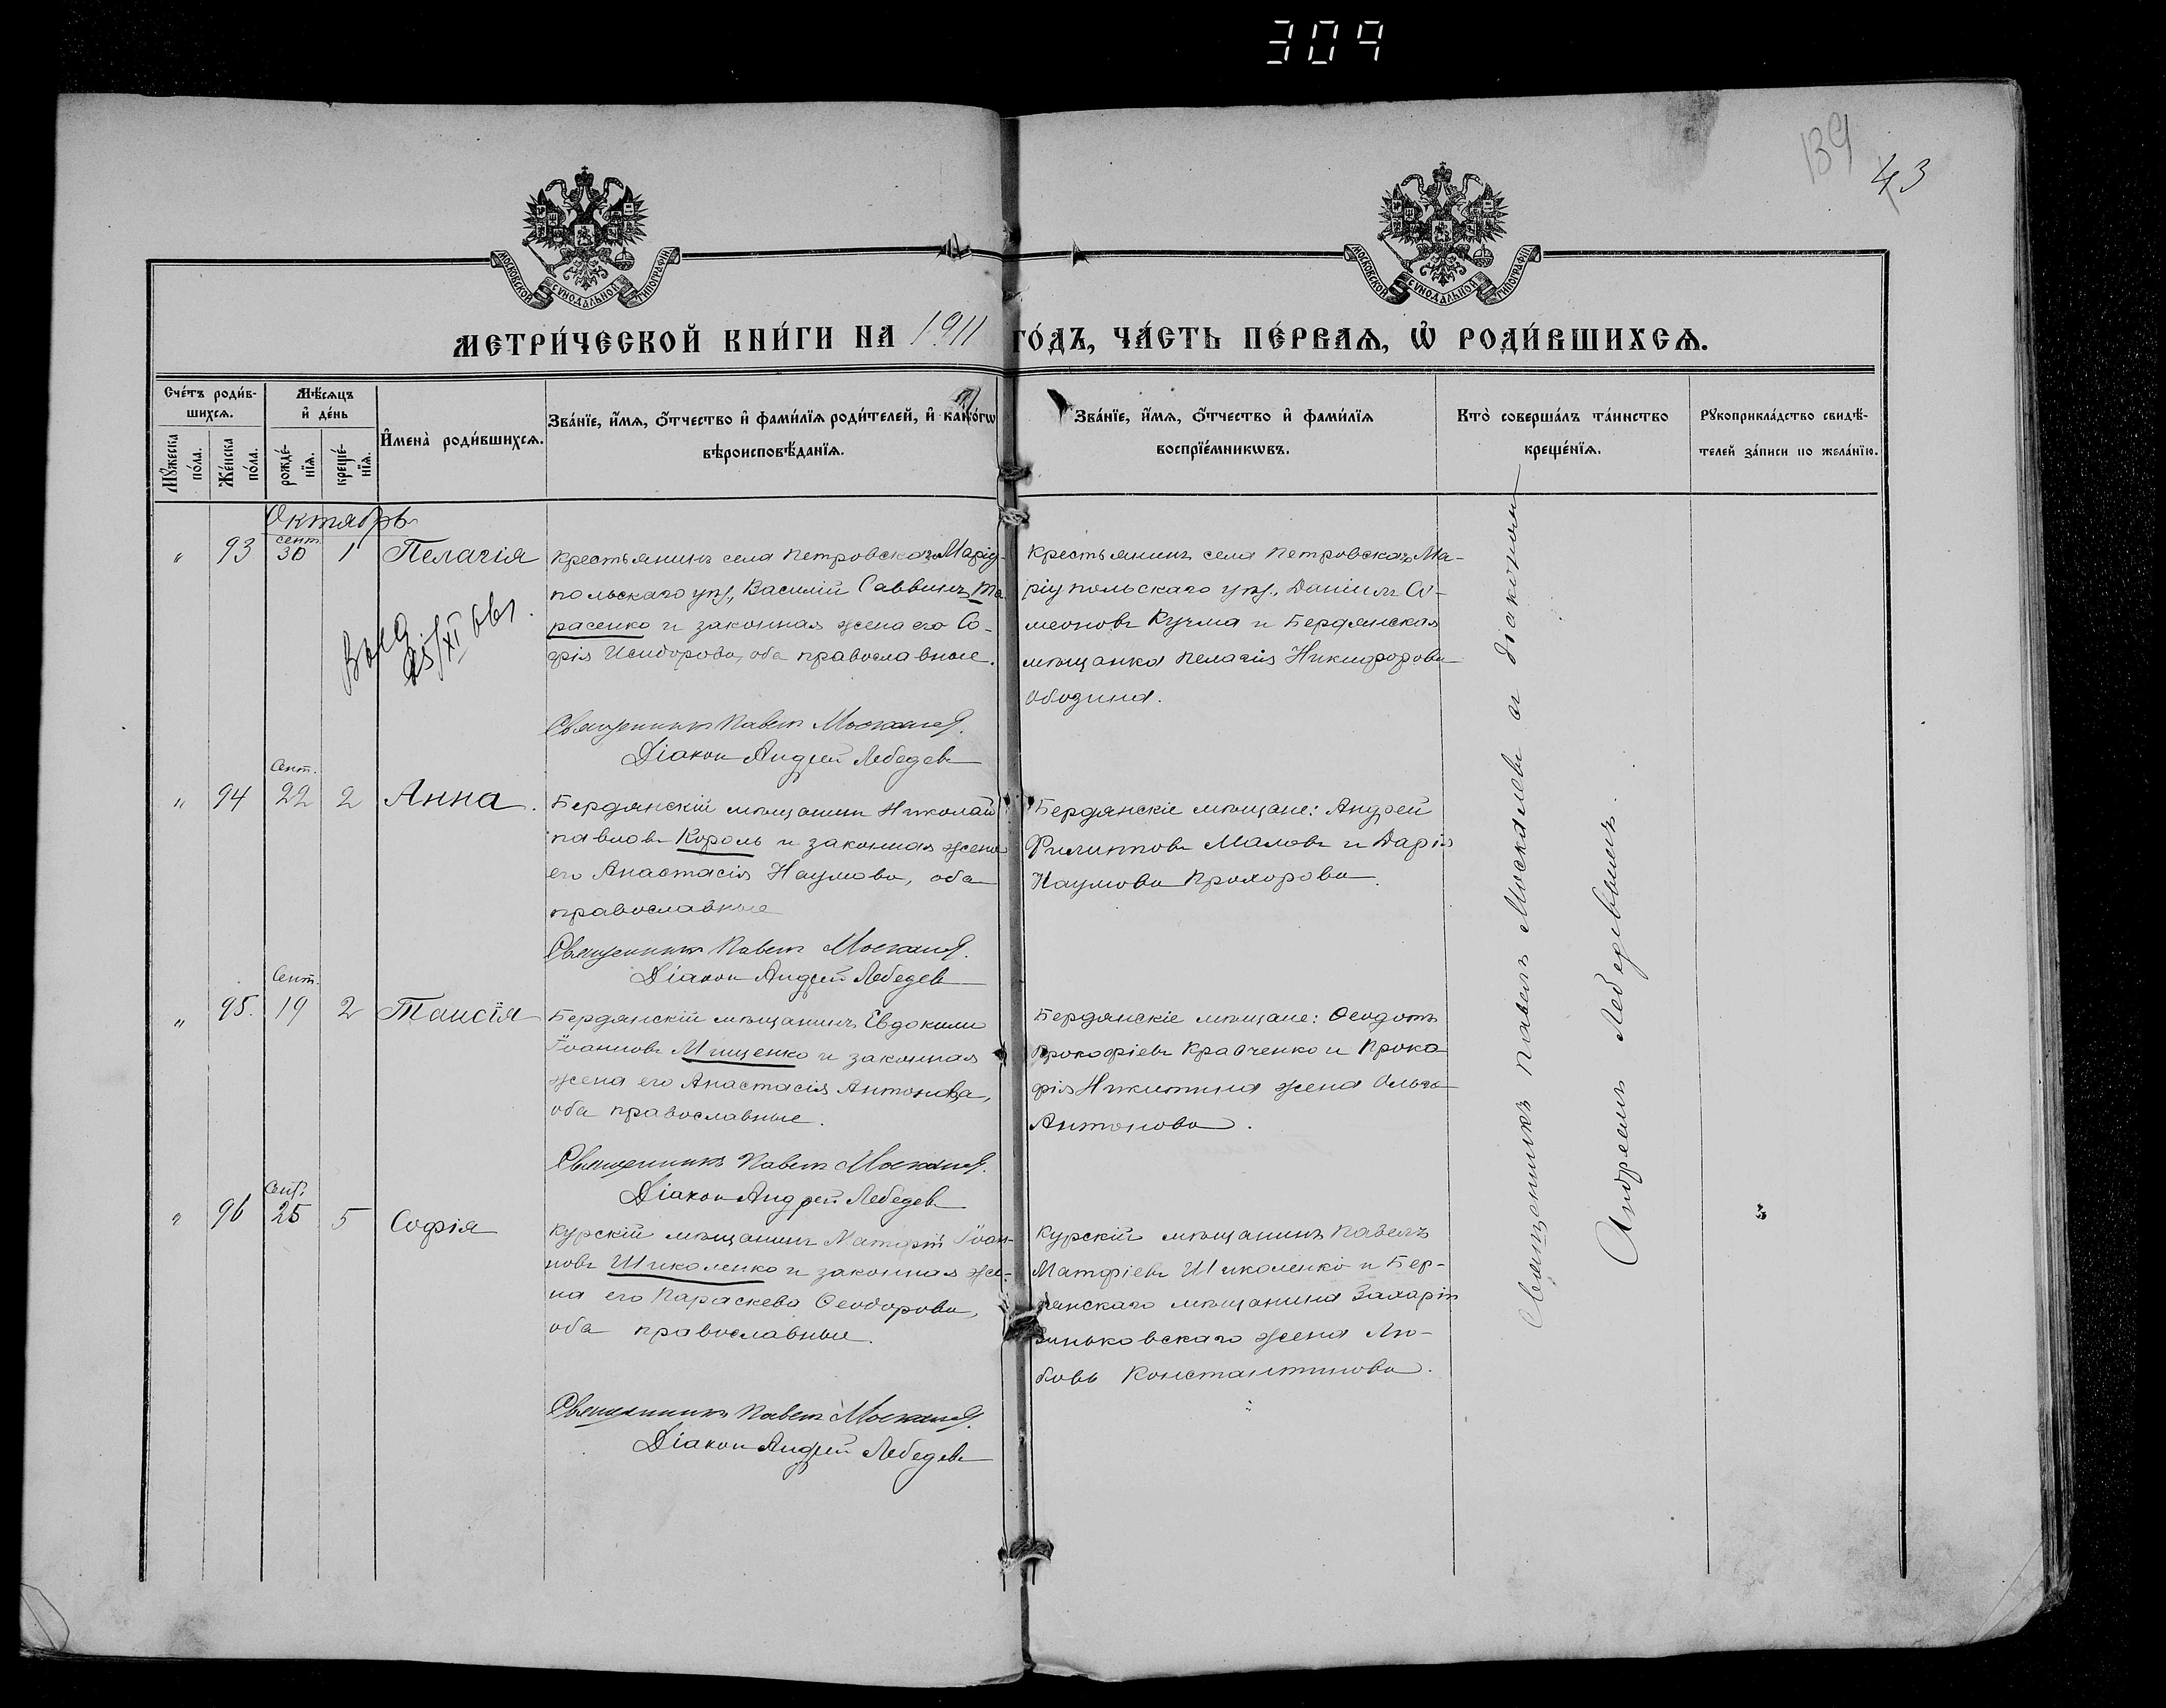 309
139
43
МОСКОВСКОЙ СѴНОДАЛЬНОЙ ТИПОГРАФІИ
МОСКОВСКОЙ СѴНОДАЛЬНОЙ ТИПОГРАФІИ
МЕТРИ́ЧЕСКОЙ КНИ́ГИ НА 1911 ГО́ДЪ, ЧА́СТЬ ПЕ́РВАѦ, Ѡ҆ РОДИ́ВШИХСѦ.
Сче́тъ роди́вшихсѧ.
Мꙋ́жеска по́ла.
Же́нска по́ла.
Мѣ́сѧцъ и҆ де́нь
рожде́нїѧ.
креще́нїѧ.
И҆мена̀ роди́вшихсѧ.
Зва́нїе, и҆́мѧ, ѻ҆́тчество и҆ фами́лїѧ роди́телей, и҆ како́гѡ
вѣроисповѣ́данїѧ.
Зва́нїе, и҆́мѧ, ѻ҆́тчество и҆ фами́лїѧ
воспрїе́мникѡвъ.
Кто̀ соверша́лъ та́инство
креще́нїѧ.
Рꙋкоприкла́дство свидѣ́-
телей за́писи по жела́нїю.
Октябрь
" 93 сент. 30 1 Пелагія
Крестьянинъ села Петровскаго Маріу-
польскаго уѣз., Василій Саввинъ Та-
расенко и законная жена его Со-
фія Исидорова, оба православные.
Священникъ Павелъ Москалевъ.
Діаконъ Андрей Лебедевъ
Крестьянинъ села Петровскаго Ма-
ріупольскаго уѣз., Даніилъ Си-
меоновъ Кучма и Бердянская
мѣщанка Пелагія Никифорова
25/XI
" 94 Сент. 22 2 Анна.
Бердянскій мѣщанинъ Николай
Павловъ Король и законная жена
его Анастасія Наумова, оба
православные
Священникъ Павелъ Москалевъ.
Діаконъ Андрей Лебедевъ
Бердянскіе мѣщане: Андрей
Филипповъ Маловъ и Дарія
Наумова Прохорова.
" 95. Сент. 19 2 Таисія
Бердянскій мѣщанинъ Евдокимъ
Іоанновъ Мищенко и законная
жена его Анастасія Антонова,
оба православные.
Священникъ Павелъ Москалевъ.
Діаконъ Андрей Лебедевъ
Бердянскіе мѣщане: Ѳеодотъ
Прокофіевъ Кравченко и Проко
фія Никитина жена Ольга
Антонова.
" 96 Сент. 25 5 Софія
Курскій мѣщанинъ Матфій Іоан-
новъ Шиколенко и законная же-
на его Параскева Ѳеодорова,
оба православные.
Священникъ Павелъ Москалевъ.
Діаконъ Андрей Лебедевъ
Курскій мѣщанинъ Павелъ
Матфіевъ Шиколенко и Бер-
дянскаго мѣщанина Захарія
Зиньковскаго жена Лю-
бовь Константинова.
Священникъ Павелъ Москалевъ съ діакономъ
Андреемъ Лебедевымъ.